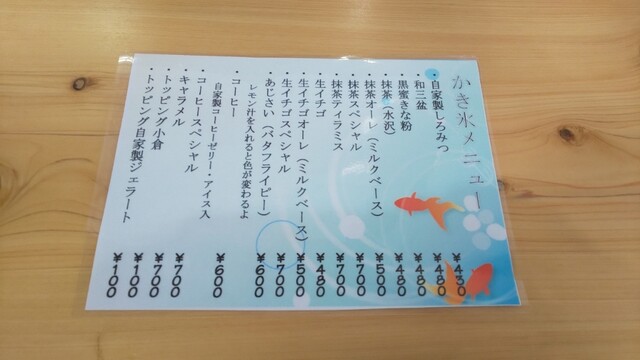 かき氷メニュー
・自家製しろみつ ¥430
・和三盆 ¥480
・黒蜜きな粉 ¥480
・抹茶(水沢) ¥480
・抹茶オーレ(ミルクベース) ¥500
・抹茶スペシャル ¥700
・抹茶ティラミス ¥700
・生イチゴ ¥480
・生イチゴオーレ(ミルクベース) ¥500
・生イチゴスペシャル ¥700
・あじさい(バタフライピー) ¥600
レモン汁を入れると色が変わるよ
・コーヒー ¥600
自家製コーヒーゼリー・アイス入
・コーヒースペシャル ¥700
・キャラメル ¥700
・トッピング小倉 ¥100
・トッピング自家製ジェラート ¥100